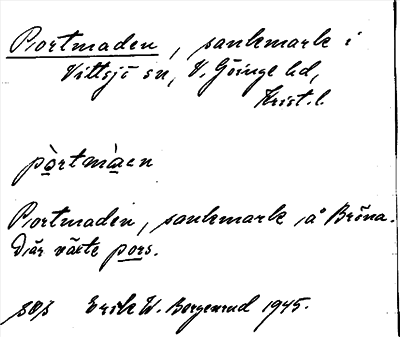 Portmaden, sankmark i
Vittsjö sn, V. Göinge hd,
Krist. l.
pòrtmàen
Portmaden, sankmark å Bröna.
Där växte pors.
Erik W. Borgenrud 1945.